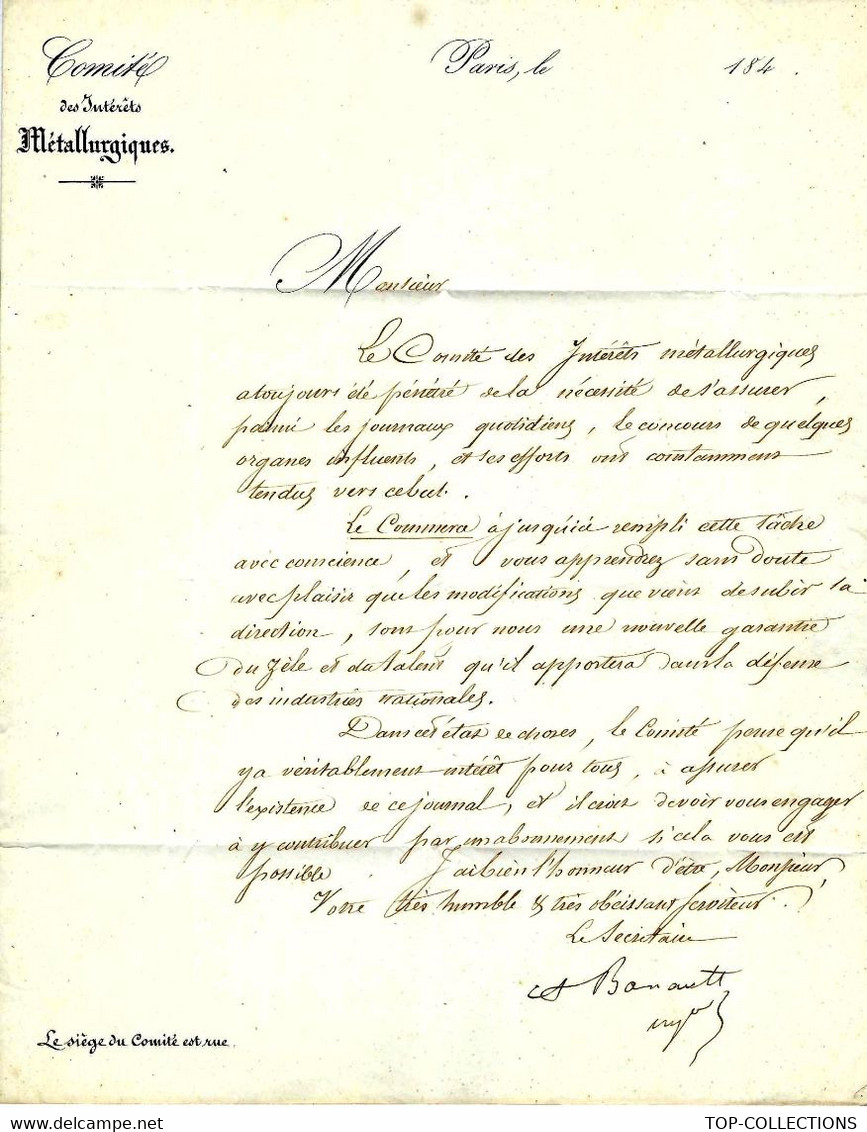 Comité
des Intérêts
Métallurgiques.
Paris, le 184 .
Monsieur
Le Comité des Intérêts métallurgiques
a toujours été pénétré de la nécessité de s'assurer,
parmi les journaux quotidiens, le concours de quelques
organes influents, et ses efforts ont constamment
tendus vers ce but.
Le Commerce à jusqu'ici rempli cette tâche
avec conscience, et vous apprendrez sans doute
avec plaisir que les modifications que vient de subir sa
direction, sont pour nous une nouvelle garantie
du zèle et du talent qu'il apportera dans la défense
des industries nationales.
Dans cet état de choses, le Comité pense qu'il
y a véritablement intérêt pour tous, à assurer
l'existence de ce journal, et il croit devoir vous engager
à y contribuer par un abonnement si cela vous est
possible. J'ai bien l'honneur d'être, Monsieur,
Votre très humble & très obéissant serviteur.
Le Secrétaire
Le siège du Comité est rue
TOP-COLLECTIONS